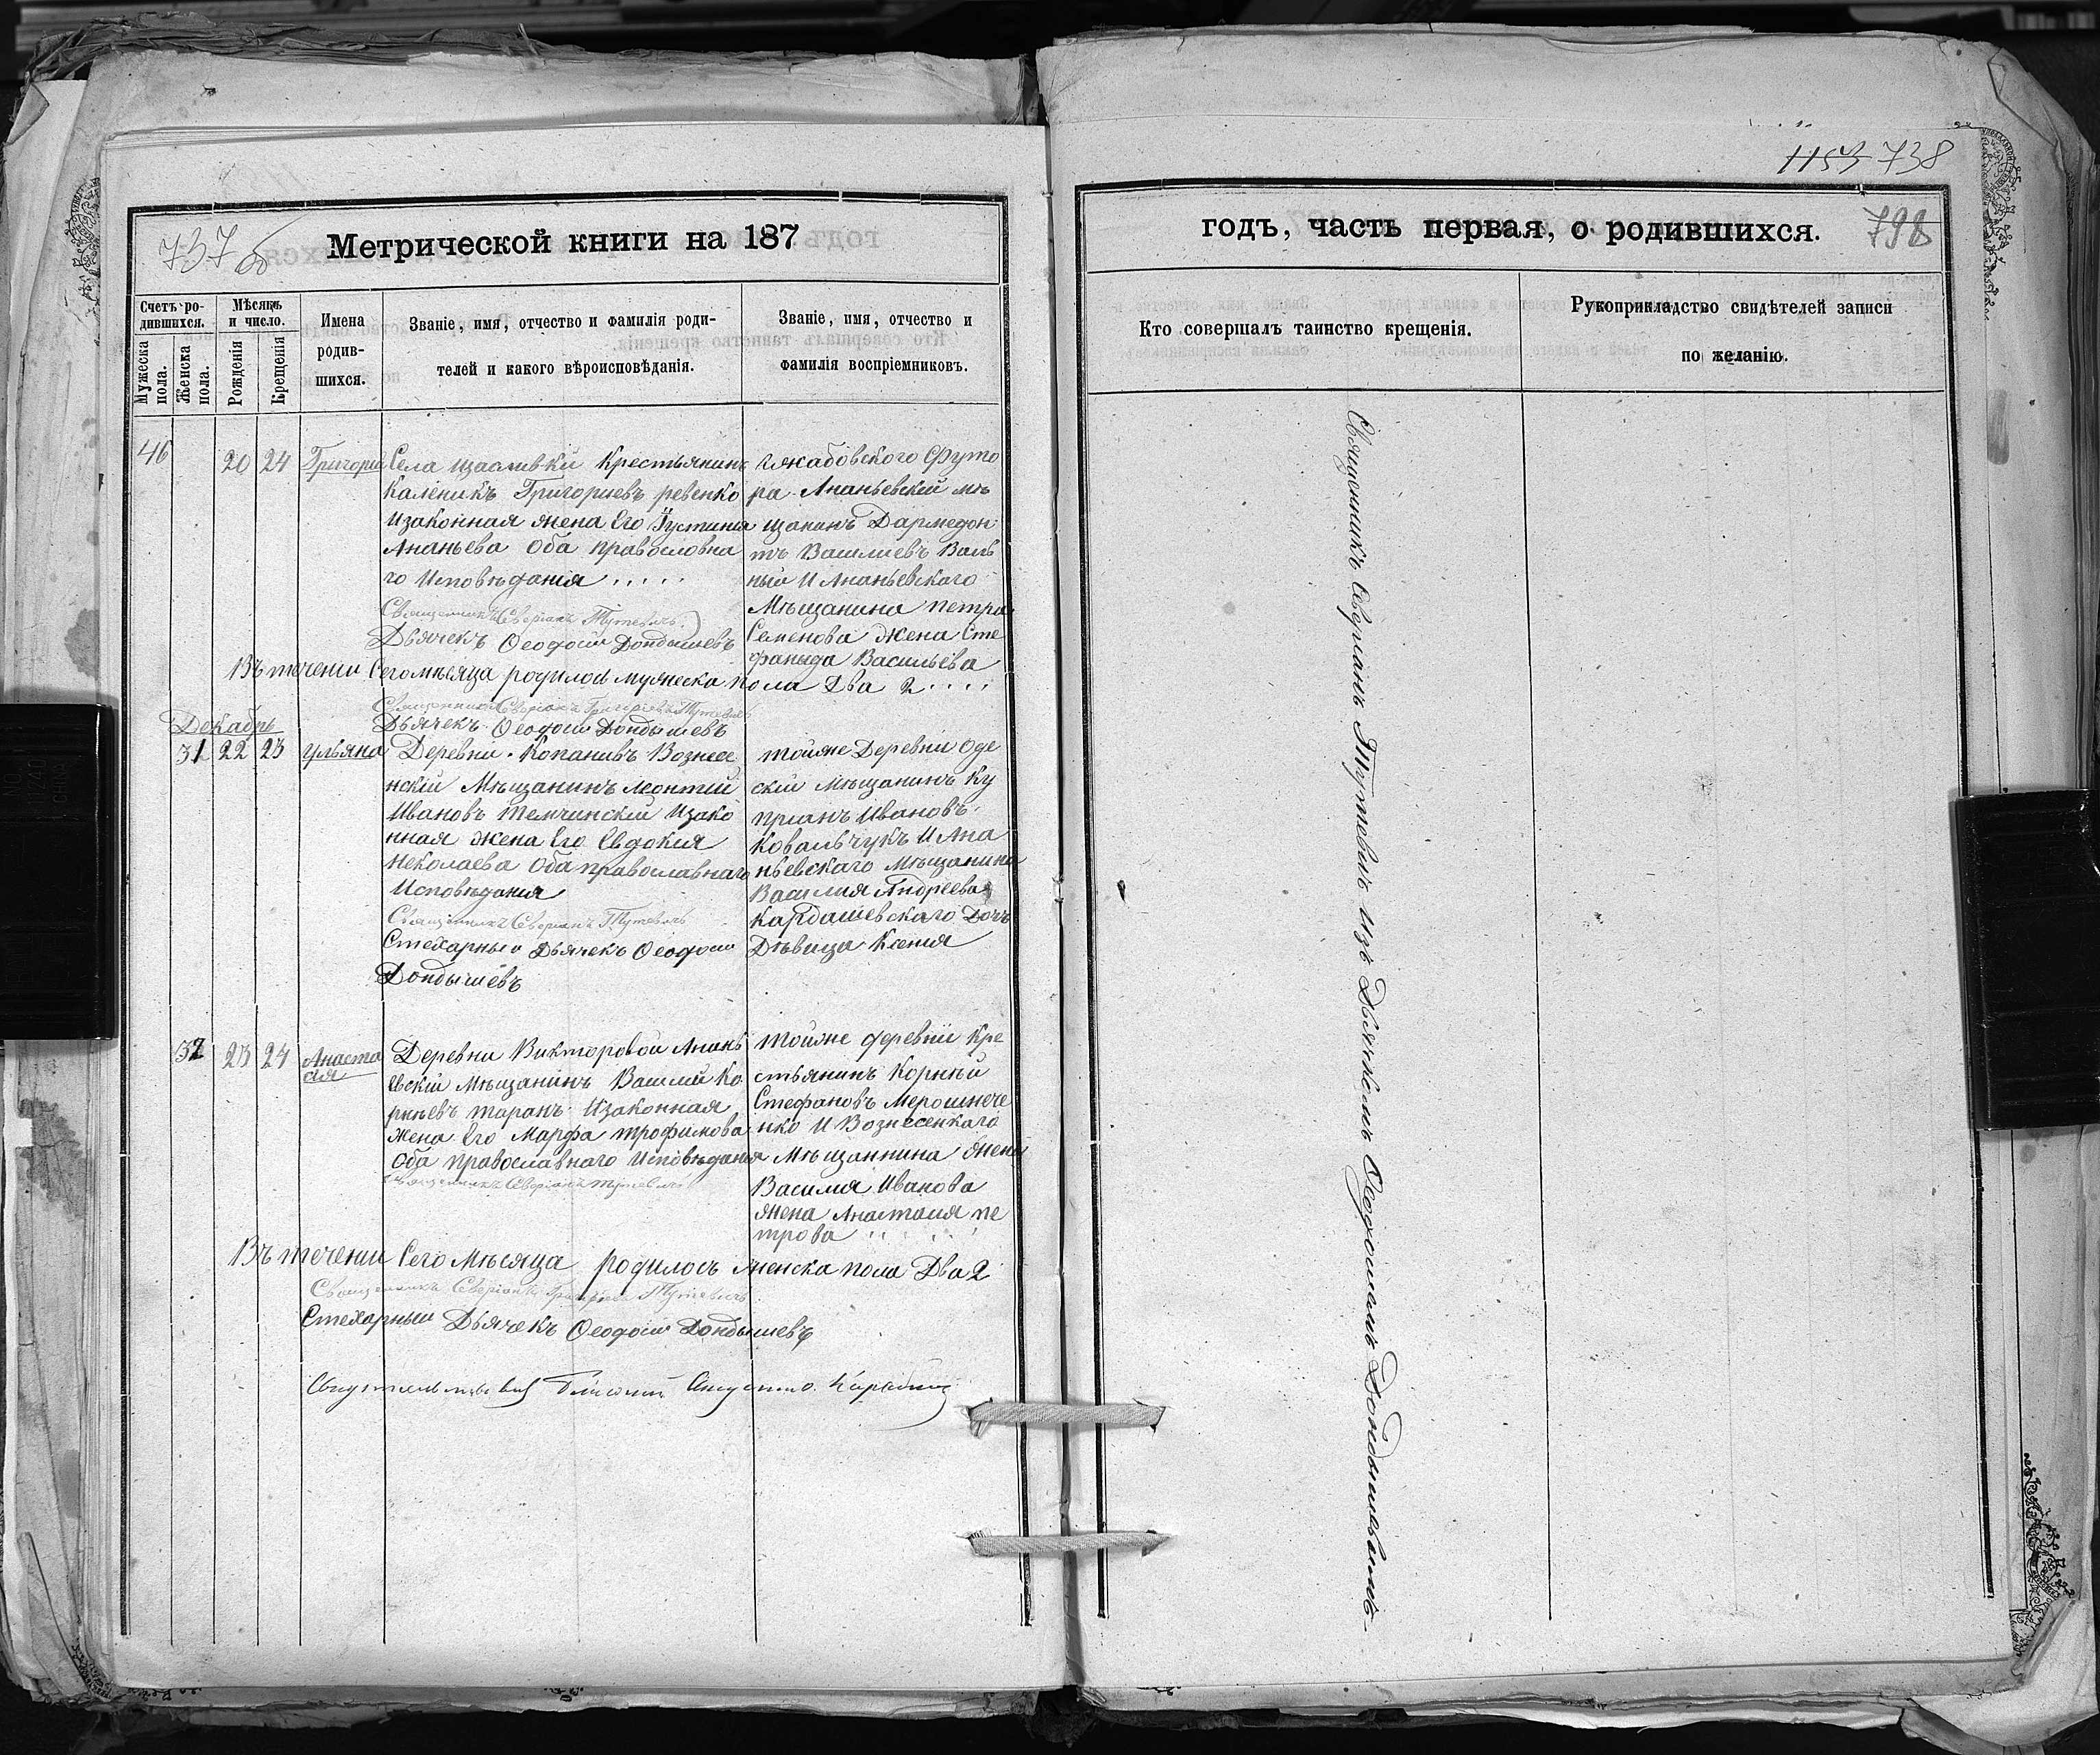 737 б
Метрической книги на 187
Счетъ ро-
дившихся.
Мужеска
пола.
Женска
пола.
Мѣсяцъ
и число.
Рожденія
Крещенія
Имена
родив-
шихся.
Званіе, имя, отчество и фамилія роди-
телей и какого вѣроисповѣданія.
Званіе, имя, отчество и
фамилія воспріемниковъ.
46 20 24 Григорій
Села Крестьянинъ
Каленикъ Григориевъ ревенко
Изаконная жена Его Іустиния
Ананьева Оба православна
го Исповѣдания
Священникъ Северіанъ Тутевичъ
Дьячекъ Ѳеодосій Дондышевъ
Футо
ра Ананьевскій мѣ
щанинъ
тъ Василиевъ Валь
ный И Ананьевского
Мѣщанина петра
Семенова жена Сте
фанида Васильева
Въ течении Сего мѣсяца родилось мужеска пола Два 2
Священникъ Северіанъ Григоріевъ Тутевичъ
Дьячекъ Ѳеодосій Дондышевъ
Декабрь
31 22 23 Ульяна
Деревни Копанивъ Вознесе
нскій Мѣщанинъ Леонтій
Ивановъ Темчинскій Изако
нная жена Его Евдокия
Николаева Оба православнаго
Исповѣдания
Священникъ Северіанъ Тутевичъ
Стехарный Дьячекъ Ѳеодосій
Дондышевъ
тойже Деревни Оде
скій Мѣщанинъ Ку
приянъ Ивановъ
Ковальчукъ И Ана
ньевскаго Мѣщанина
Василия Андреева
Кардашевскаго Дочь
Дѣвица Ксения
32 23 24 Анаста
сия
Деревни Викторовой Анань
евскій Мѣщанинъ Василий Ко
рнѣевъ таранъ Изаконная
Жена Его Марфа трофимова
Оба православнаго Исповѣдания
Священникъ Северіанъ Тутевичъ
Тойже деревни Кре
стьянинъ Корнѣй
Стефановъ Мерошниче
нко И Вознесенкаго
Мѣщаннина
Василия Иванова
жена Анастасия пе
трова
Въ течении Сего Мѣсяца родилось женска пола Два 2
Священникъ Северіанъ Григоріевъ Тутевичъ
Стехарный Дьячекъ Ѳеодосій Дондышевъ
1153 738
годъ, часть первая, о родившихся.
798
Кто совершалъ таинство крещенія.
Рукоприкладство свидѣтелей записи
по желанію.
Священникъ Северіанъ Тутевичъ Изъ Дьячкомъ Ѳеодосиемъ Дондышевымъ